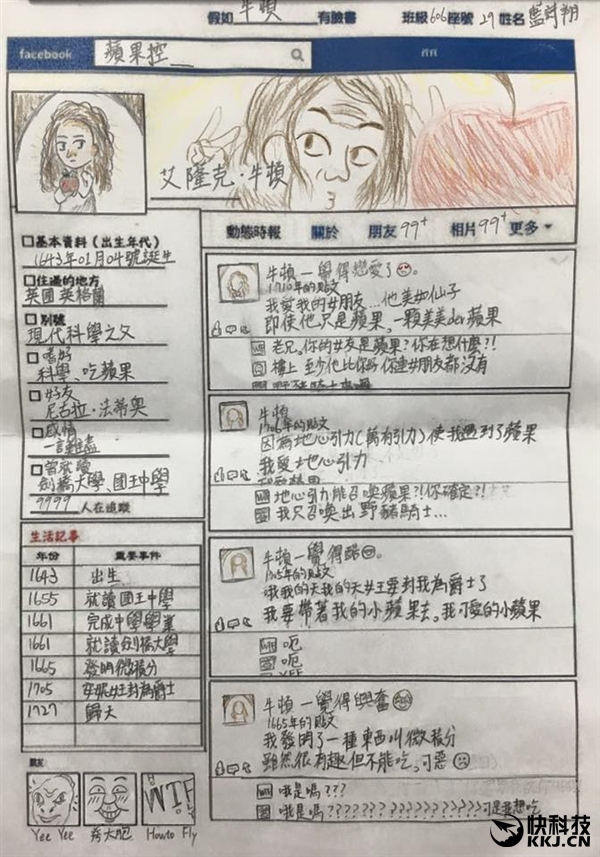 假如 牛頓 有臉書 班級 606 座號 29 姓名 藍詩翔
facebook 蘋果控
艾隆克·牛頓
動態時報 關於 朋友 99+ 相片 99+ 更多
基本資料(出生年代)
1643年01月04號誕生
住過的地方
英國 英格蘭
別號
現代科學之父
嗜好
科學、吃蘋果
好友
尼古拉·法蒂奧
感情
一言難盡
曾就讀
劍橋大學、國王中學
9999 人在追蹤
生活記事
年份 重要事件
1643 出生
1655 就讀國王中學
1661 完成中學學業
1661 就讀劍橋大學
1665 發明微積分
1705 安妮女王封為爵士
1727 歸天
朋友
Yee Yee 秀太肥 How to Fly
WTF
牛頓 一覺得戀愛了。
1710年的貼文
我愛我的女朋友...他美如仙子
即使他只是蘋果,一顆美美der蘋果
老兄,你的女友是蘋果?你在想什麼?!
樓上 至少他比你好 你連女朋友都沒有
牛頓
1706年的貼文
因為地心引力(萬有引力)使我遇到了蘋果
我愛地心引力
地心引力能召喚蘋果?!你確定?!
我只召喚出野豬騎士...
牛頓 一覺得酷。
1705年的貼文
哦我的天我的天女王要封我為爵士了
我要帶著我的小蘋果去。我可愛的小蘋果
呃
呃
牛頓 一覺得興奮
1665年的貼文
我發明了一種東西叫微積分
雖然很有趣但不能吃,可惡
哦是嗎???
哦是嗎??????????????????可是我想吃
快科技
KKJ.CN